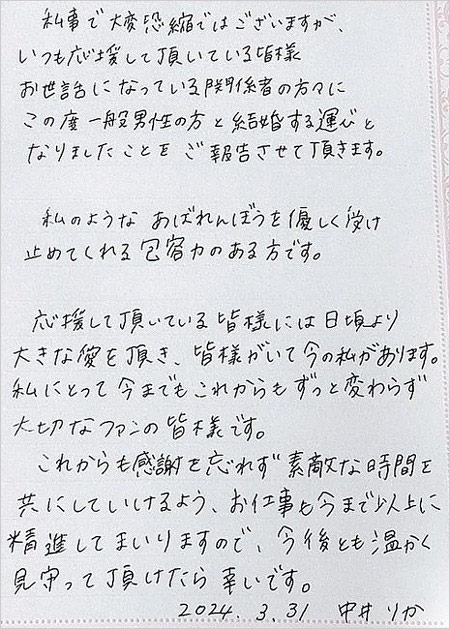 私事で大変恐縮ではございますが、
いつも応援して頂いている皆様
お世話になっている関係者の方々に
この度一般男性の方と結婚する運びと
なりましたことをご報告させて頂きます。
私のようなあばれんぼうを優しく受け
止めてくれる包容力のある方です。
応援して頂いている皆様には日頃より
大きな愛を頂き、皆様がいて今の私があります。
私にとって今までもこれからもずっと変わらず
大切なファンの皆様です。
これからも感謝を忘れず素敵な時間を
共にしていけるよう、お仕事も今まで以上に
精進してまいりますので、今後とも温かく
見守って頂けたら幸いです。
2024.3.31 中井りか